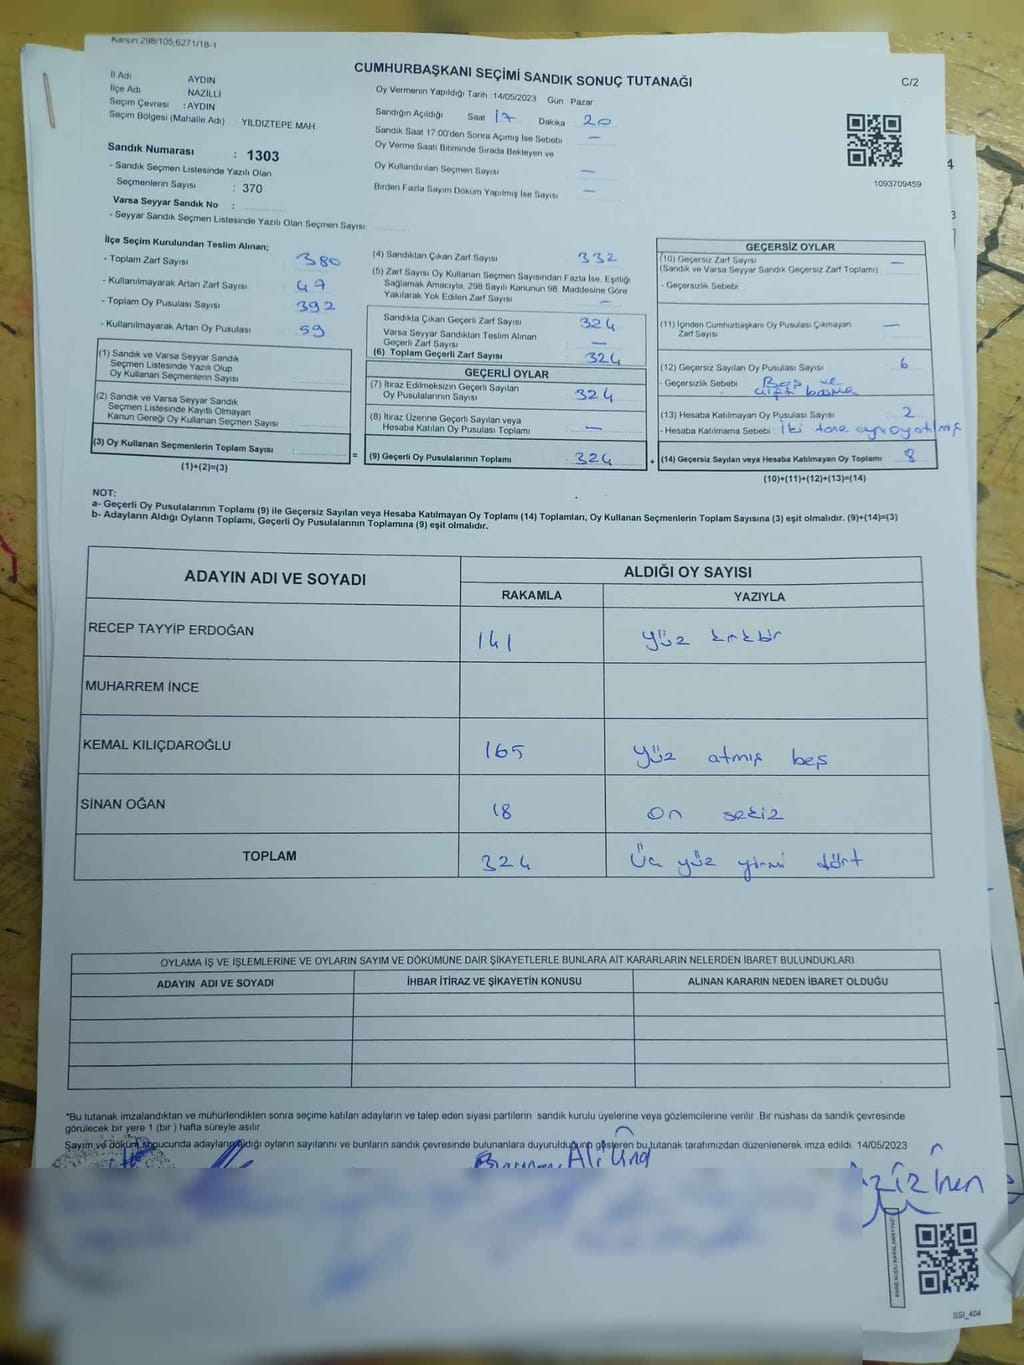 Kanun 298/105,6271/18-1
CUMHURBAŞKANI SEÇİMİ SANDIK SONUÇ TUTANAĞI
C/2
İl Adı AYDIN
İlçe Adı NAZİLLİ
Seçim Çevresi : AYDIN
Seçim Bölgesi (Mahalle Adı) YILDIZTEPE MAH
Oy Vermenin Yapıldığı Tarih 14/05/2023 Gün Pazar
Sandığın Açıldığı Saat 17 Dakika 20
Sandık Saat 17:00'den Sonra Açımış İse Sebebi —
Oy Verme Saati Bitiminde Sırada Bekleyen ve
Oy Kullandırılan Seçmen Sayısı —
Birden Fazla Sayım Döküm Yapılmış İse Sayısı —
1093709459
Sandık Numarası : 1303
- Sandık Seçmen Listesinde Yazılı Olan
Seçmenlerin Sayısı : 370
Varsa Seyyar Sandık No :
- Seyyar Sandık Seçmen Listesinde Yazılı Olan Seçmen Sayısı
İlçe Seçim Kurulundan Teslim Alınan;
- Toplam Zarf Sayısı 380
- Kullanılmayarak Artan Zarf Sayısı 47
- Toplam Oy Pusulası Sayısı 392
- Kullanılmayarak Artan Oy Pusulası 59
(1) Sandık ve Varsa Seyyar Sandık
Seçmen Listesinde Yazılı Olup
Oy Kullanan Seçmenlerin Sayısı
(2) Sandık ve Varsa Seyyar Sandık
Seçmen Listesinde Kayıtlı Olmayan
Kanun Gereği Oy Kullanan Seçmen Sayısı
(3) Oy Kullanan Seçmenlerin Toplam Sayısı
(1)+(2)=(3)
(4) Sandıktan Çıkan Zarf Sayısı 332
(5) Zarf Sayısı Oy Kullanan Seçmen Sayısından Fazla İse, Eşitliği
Sağlamak Amacıyla, 298 Sayılı Kanunun 98. Maddesine Göre
Yakılarak Yok Edilen Zarf Sayısı —
Sandıkta Çıkan Geçerli Zarf Sayısı 324
Varsa Seyyar Sandıktan Teslim Alınan
Geçerli Zarf Sayısı —
(6) Toplam Geçerli Zarf Sayısı 324
GEÇERLİ OYLAR
(7) İtiraz Edilmeksizin Geçerli Sayılan
Oy Pusulalarının Sayısı 324
(8) İtiraz Üzerine Geçerli Sayılan veya
Hesaba Katılan Oy Pusulaları Toplamı —
= (9) Geçerli Oy Pusulalarının Toplamı : 324 +
GEÇERSİZ OYLAR
(10) Geçersiz Zarf Sayısı —
(Sandık ve Varsa Seyyar Sandık Geçersiz Zarf Toplamı)
- Geçersizlik Sebebi
(11) İçinden Cumhurbaşkanı Oy Pusulası Çıkmayan
Zarf Sayısı —
(12) Geçersiz Sayılan Oy Pusulası Sayısı 6
- Geçersizlik Sebebi Boş ve
çift basma
(13) Hesaba Katılmayan Oy Pusulası Sayısı 2
- Hesaba Katılmama Sebebi İki tane
(14) Geçersiz Sayılan veya Hesaba Katılmayan Oy Toplamı 8
(10)+(11)+(12)+(13)=(14)
NOT:
a- Geçerli Oy Pusulalarının Toplamı (9) ile Geçersiz Sayılan veya Hesaba Katılmayan Oy Toplamı (14) Toplamları, Oy Kullanan Seçmenlerin Toplam Sayısına (3) eşit olmalıdır. (9)+(14)=(3)
b- Adayların Aldığı Oyların Toplamı, Geçerli Oy Pusulalarının Toplamına (9) eşit olmalıdır.
ADAYIN ADI VE SOYADI
ALDIĞI OY SAYISI
RAKAMLA YAZIYLA
RECEP TAYYİP ERDOĞAN 141 Yüz kırkbir
MUHARREM İNCE
KEMAL KILIÇDAROĞLU 165 Yüz atmış beş
SİNAN OĞAN 18 on sekiz
TOPLAM 324 Üç yüz yirmi dört
OYLAMA İŞ VE İŞLEMLERİNE VE OYLARIN SAYIM VE DÖKÜMÜNE DAİR ŞİKAYETLERLE BUNLARA AİT KARARLARIN NELERDEN İBARET BULUNDUKLARI
ADAYIN ADI VE SOYADI İHBAR İTİRAZ VE ŞİKAYETİN KONUSU ALINAN KARARIN NEDEN İBARET OLDUĞU
*Bu tutanak imzalandıktan ve mühürlendikten sonra seçime katılan adayların ve talep eden siyasi partilerin sandık kurulu üyelerine veya gözlemcilerine verilir. Bir nüshası da sandık çevresinde
görülecek bir yere 1 (bir) hafta süreyle asılır.
Sayım ve döküm sonucunda adayların aldığı oyların sayılarını ve bunların sandık çevresinde bulunanlara duyurulduğunu gösteren bu tutanak tarafımızdan düzenlenerek imza edildi. 14/05/2023
SSİ_404